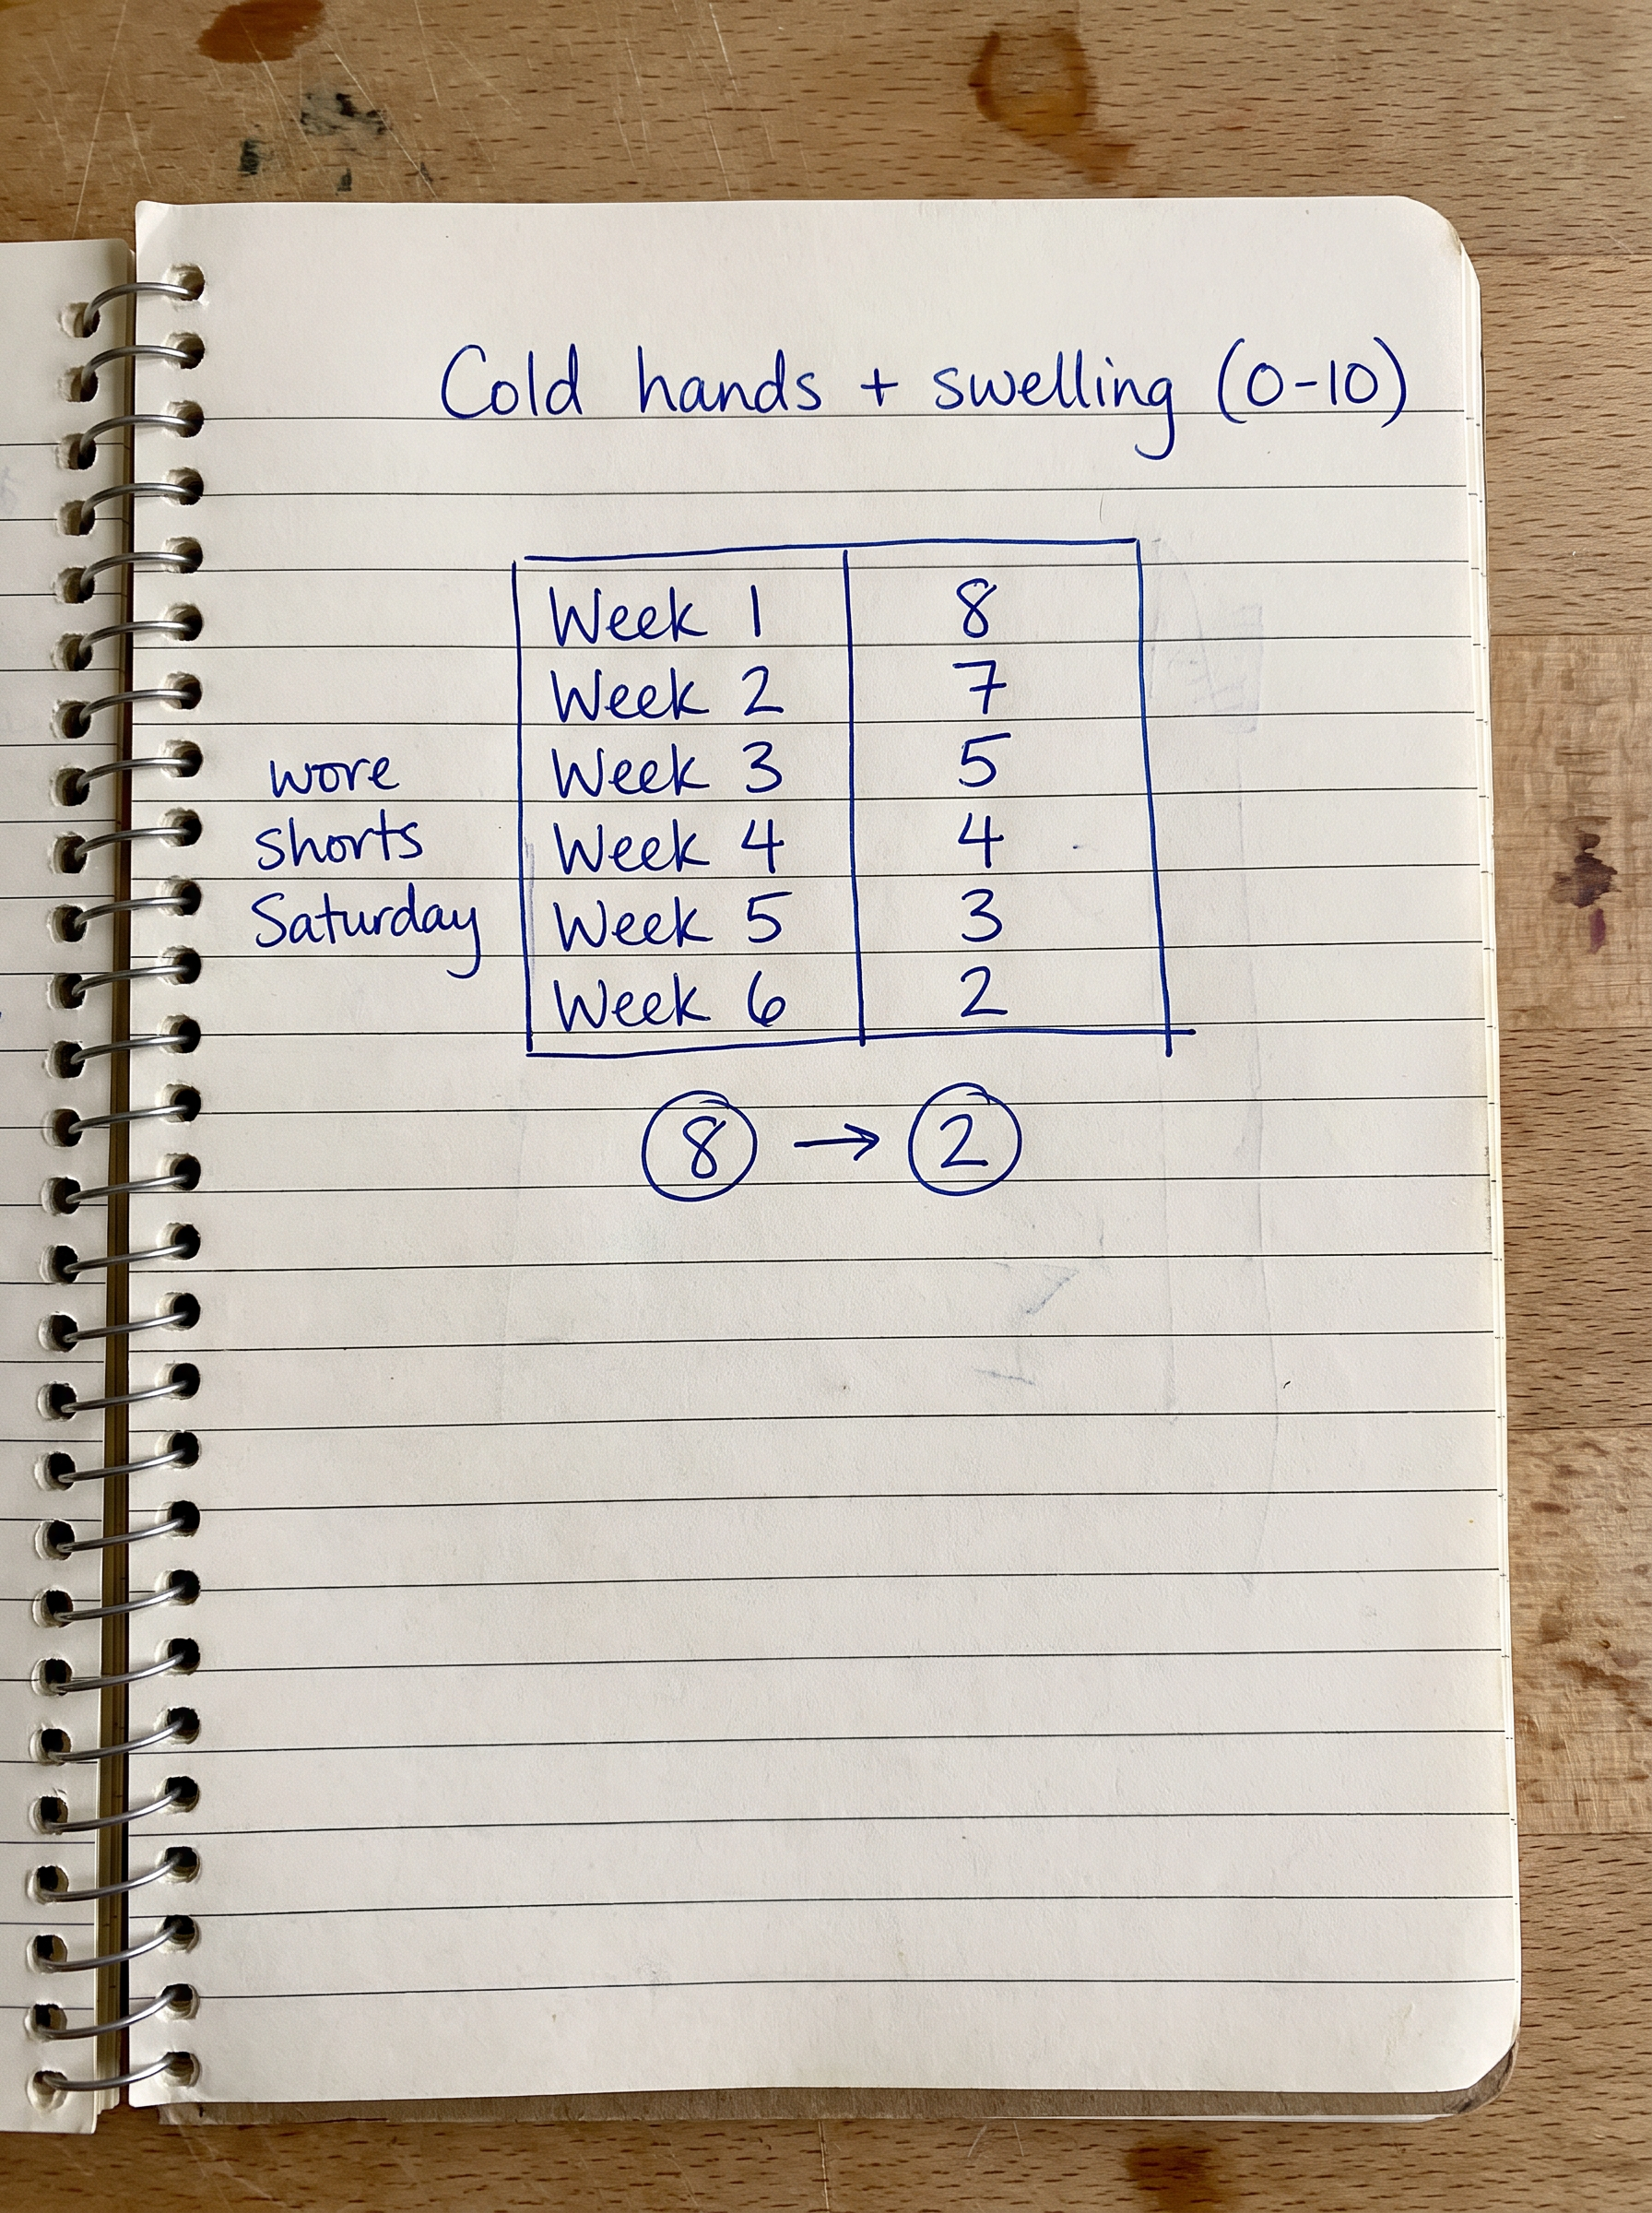 Cold hands + swelling (0-10)
Week 1 8
Week 2 7
wore
Week 3 5
shorts
Week 4 4
Saturday
Week 5 3
Week 6 2
8 → 2